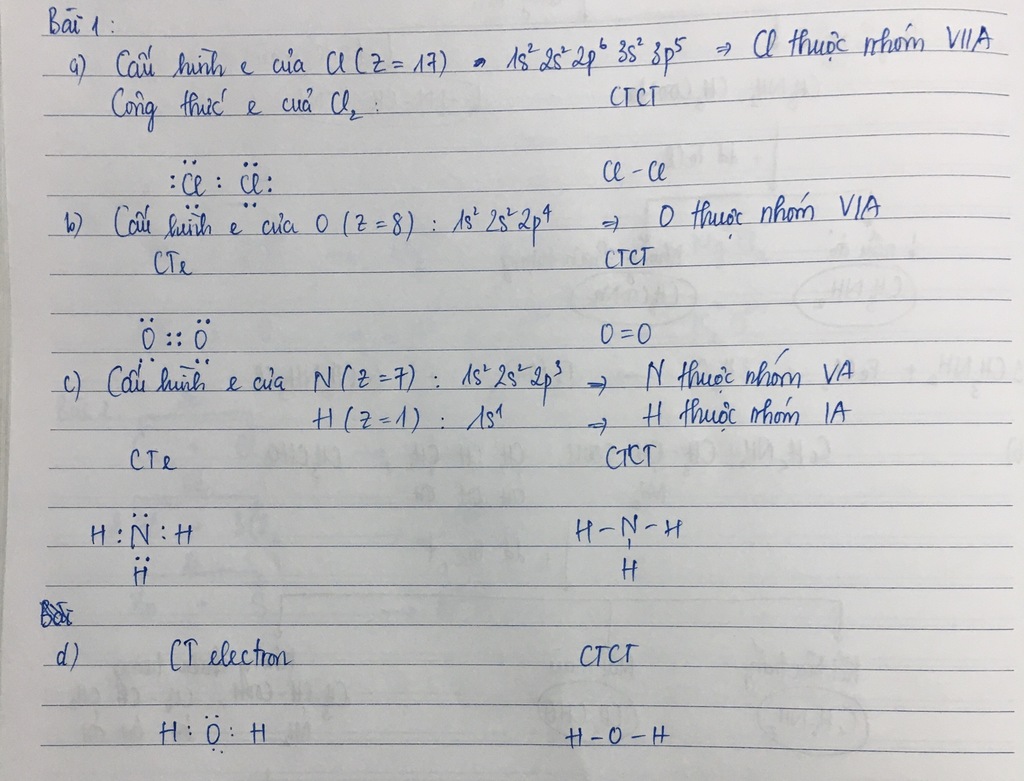 Bài 1 :
a) Cấu hình e của Cl (Z = 17) 1s² 2s² 2p⁶ 3s² 3p⁵ ⇒ Cl thuộc nhóm VIIA
Công thức e của Cl₂ : CTCT
:Cl : Cl: Cl - Cl
b) Cấu hình e của O (Z = 8) : 1s² 2s² 2p⁴ ⇒ O thuộc nhóm VIA
CTe CTCT
O :: O O = O
c) Cấu hình e của N (Z = 7) : 1s² 2s² 2p³ ⇒ N thuộc nhóm VA
H (Z = 1) : 1s¹ ⇒ H thuộc nhóm IA
CTe CTCT
H : N : H H - N - H
H H
d) CT electron CTCT
H : O : H H - O - H